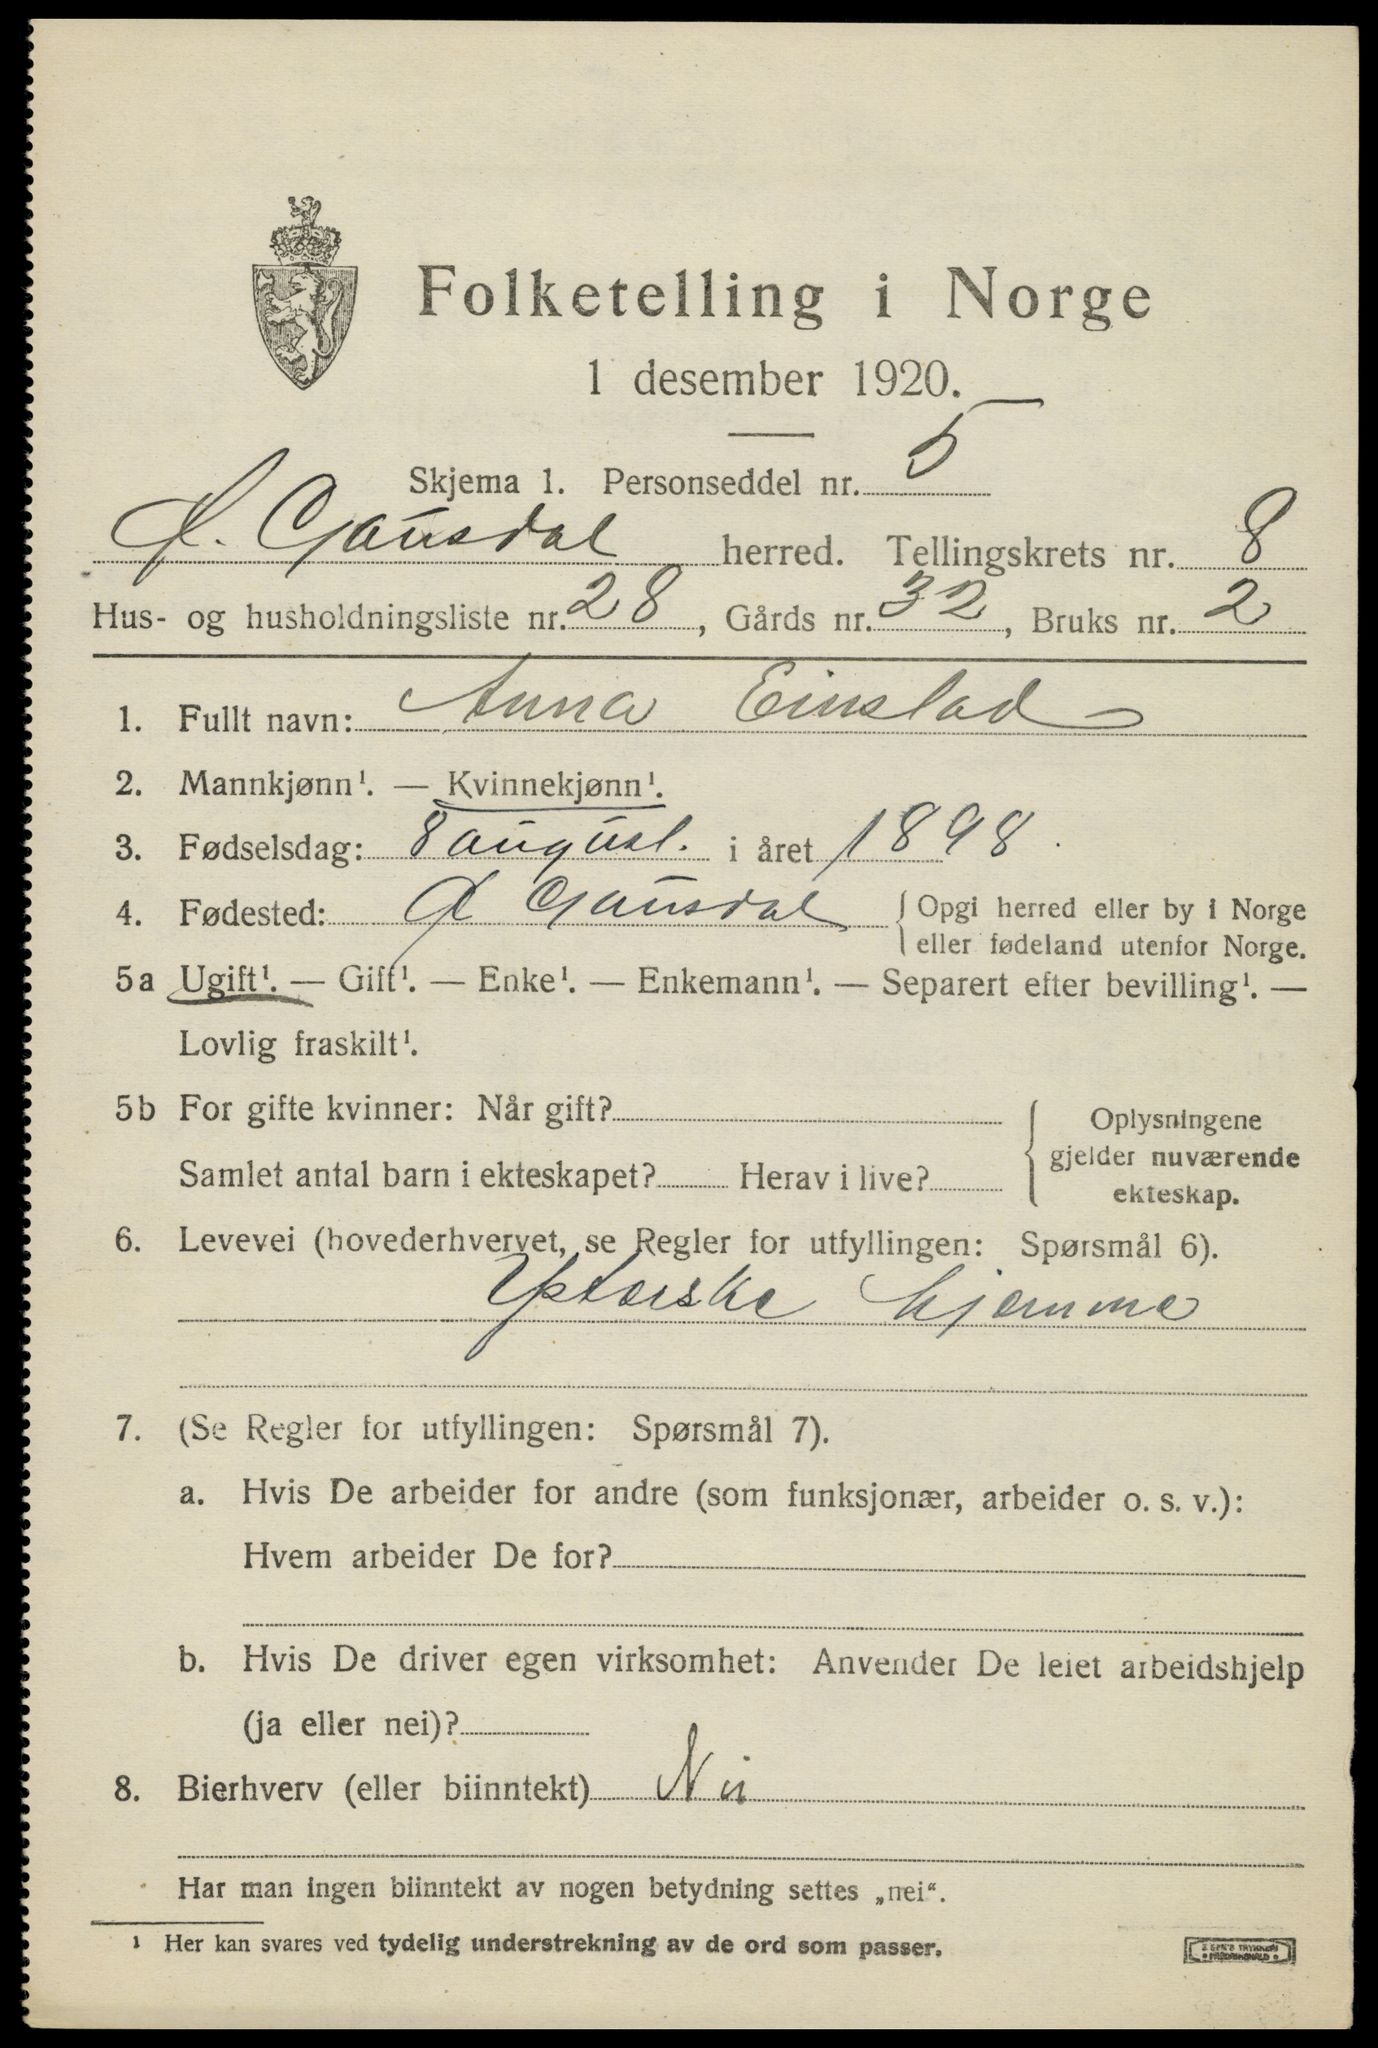 Folketelling i Norge
1 desember 1920.
Skjema 1. Personseddel nr. 5
Ø. Gausdal herred. Tellingskrets nr. 8
Hus- og husholdningsliste nr. 28, Gårds nr. 32, Bruks nr. 2
1. Fullt navn: Anna Einstad
2. Mannkjønn¹. — Kvinnekjønn¹.
3. Fødselsdag: 8 august. i året 1898.
4. Fødested: Ø Gausdal { Opgi herred eller by i Norge
eller fødeland utenfor Norge.
5a Ugift¹. — Gift¹. — Enke¹. — Enkemann¹. — Separert efter bevilling¹. —
Lovlig fraskilt¹.
5b For gifte kvinner: Når gift?
Samlet antal barn i ekteskapet? Herav i live?
{ Oplysningene
gjelder nuværende
ekteskap.
6. Levevei (hovederhvervet, se Regler for utfyllingen: Spørsmål 6).
hjemme
7. (Se Regler for utfyllingen: Spørsmål 7).
a. Hvis De arbeider for andre (som funksjonær, arbeider o. s. v.):
Hvem arbeider De for?
b. Hvis De driver egen virksomhet: Anvender De leiet arbeidshjelp
(ja eller nei)?
8. Bierhverv (eller biinntekt) Nei
Har man ingen biinntekt av nogen betydning settes „nei“.
¹ Her kan svares ved tydelig understrekning av de ord som passer.